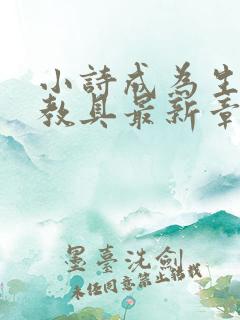 小詩戒為生
教具最新章
墨臺洗劍
未经同意禁止转载